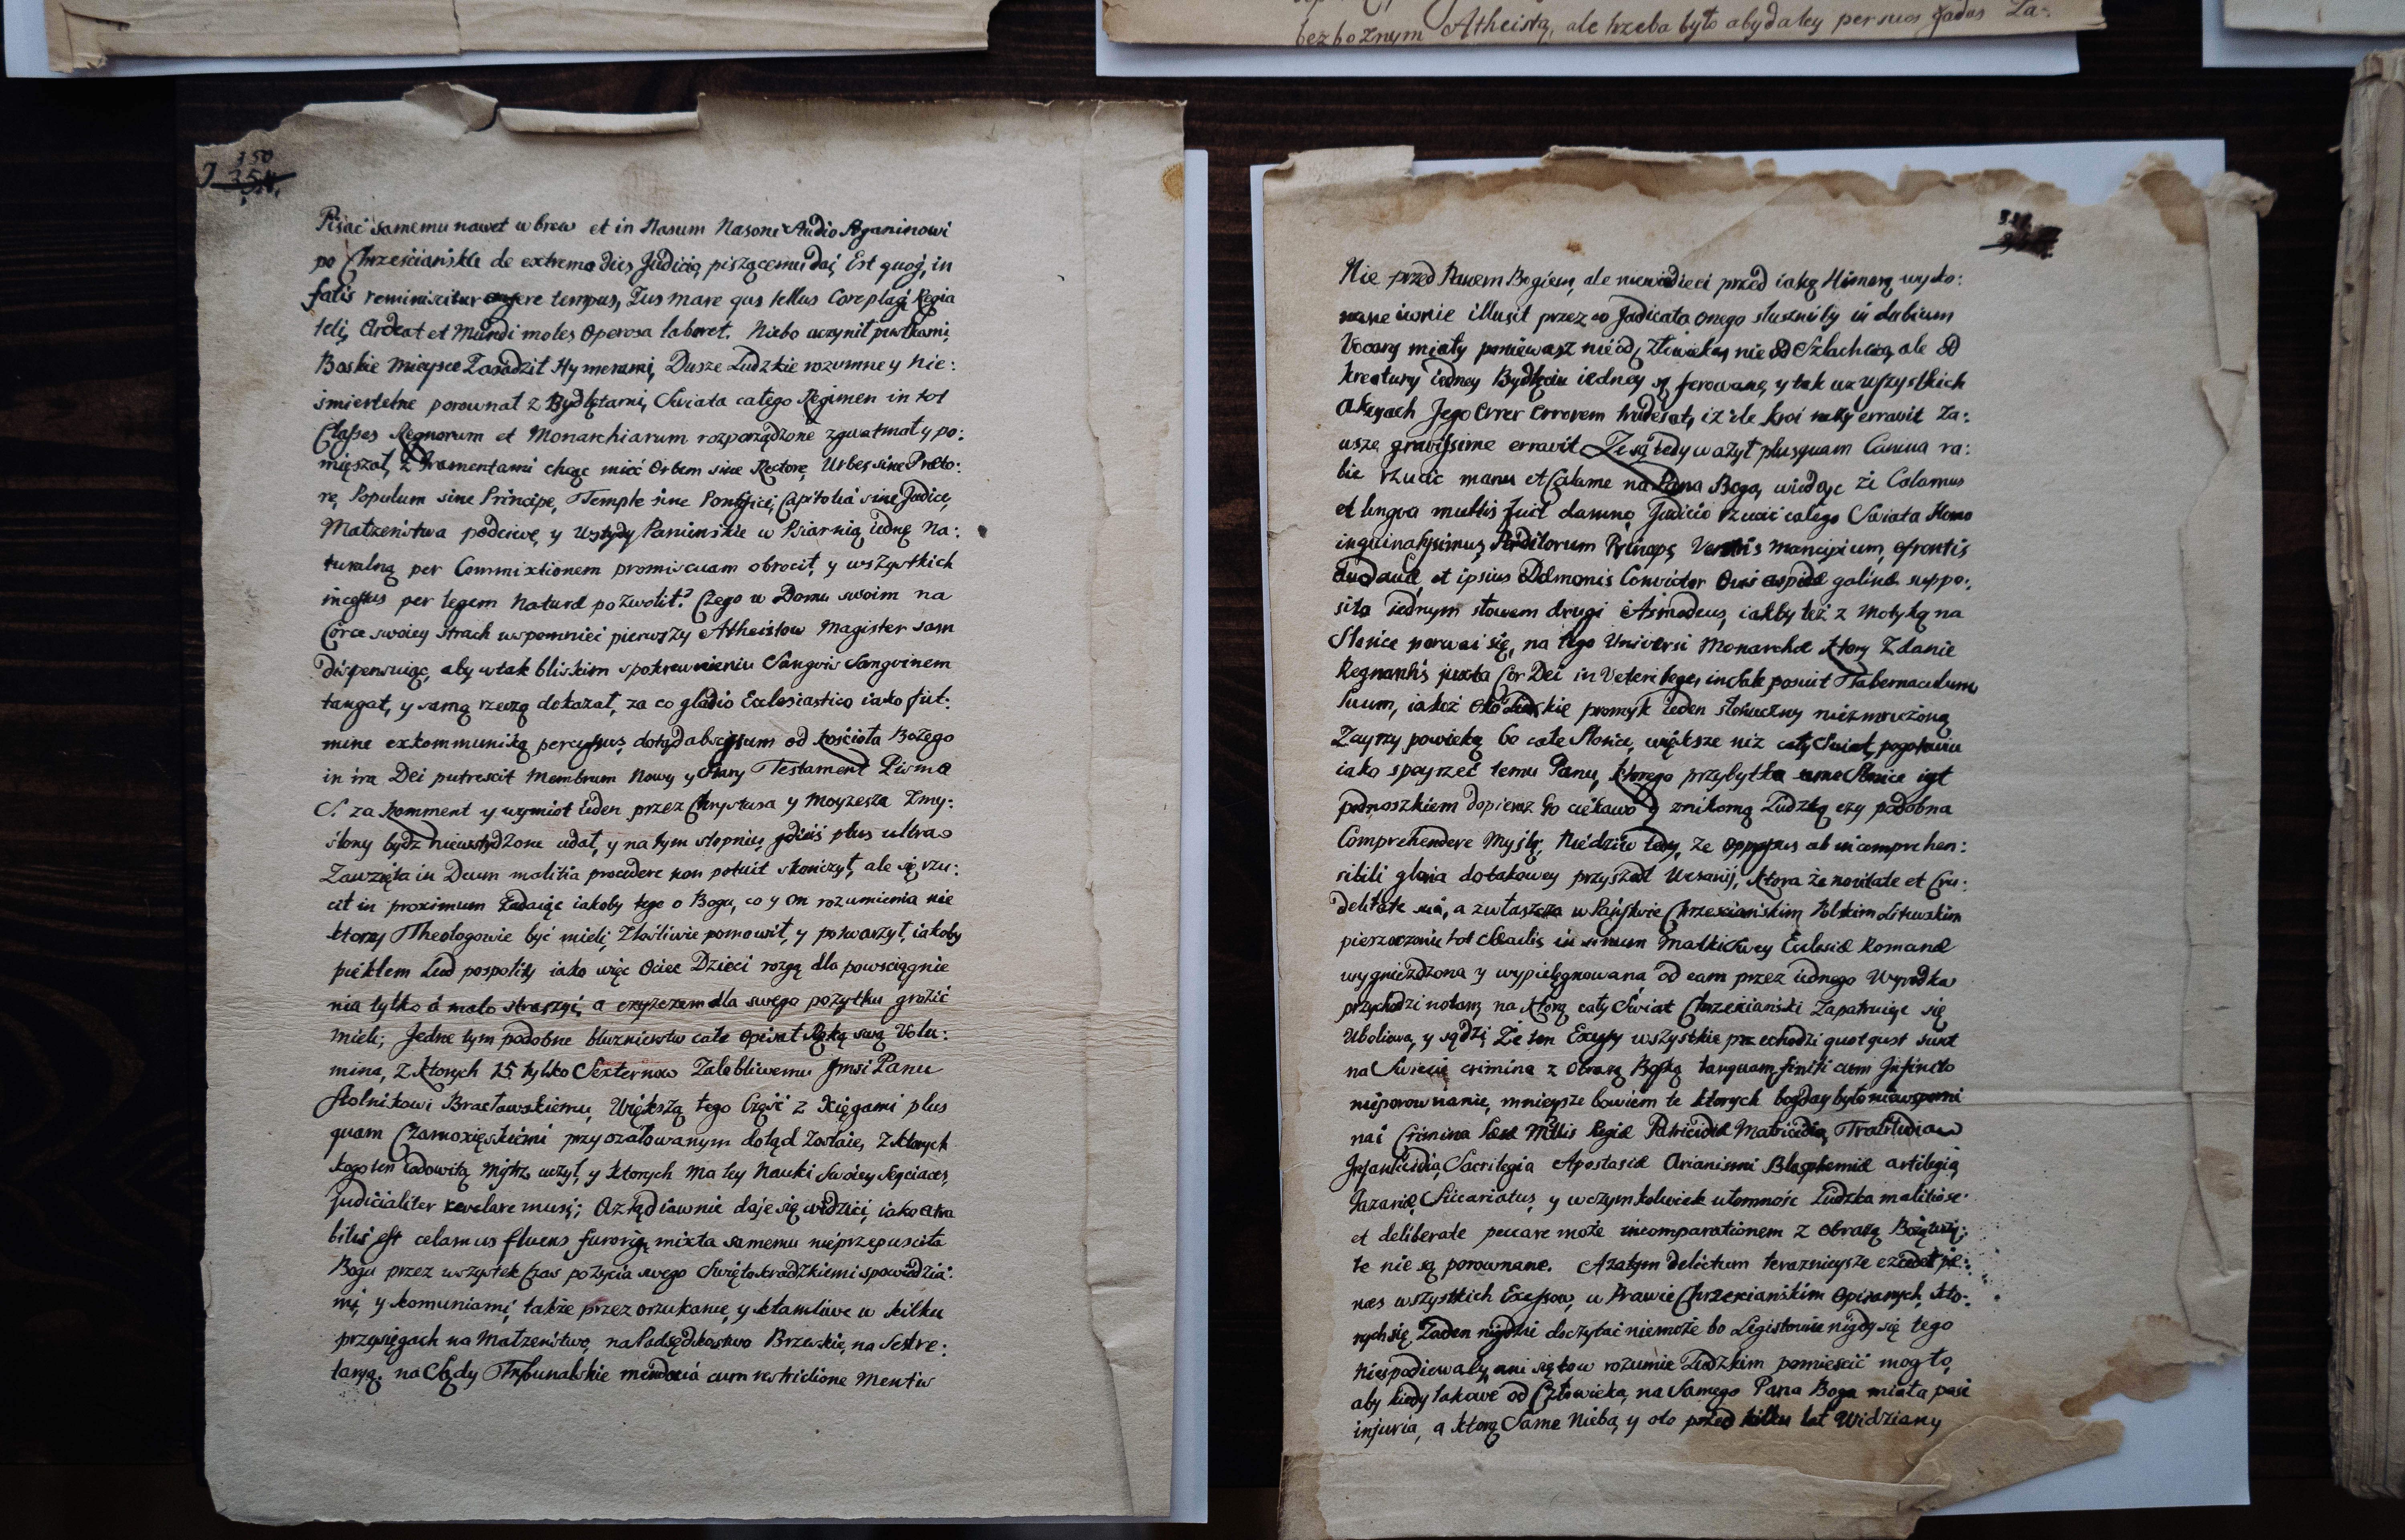 bezbożnym Atheistą, ale trzeba było aby daley per suos gradus Za:
J 350
Pisać samemu nawet w brew et in Nasum Nasoni
po Chrześciańsku de extrema dies Judicio piszącemu dać, Est quoq, in
fatis reminiscitur tempus, quo mare quo tellus Coreptaq Regia
teli, Ardeat et Mundi moles Operosa laboret. Niebo uczynił pustkami,
Boskie mieysce Zasadził Hymerami, Dusze Ludzkie rozumne y nie:
śmiertelne porownał z Bydlętami, Swiata całego Regimen in tot
Classes Regnorum et Monarchiarum rozporządzone zgwatmał y po:
mięszał, z chcąc mieć Orbem sine Rectore, Urbes sine Præto:
re, Populum sine Principe, Temple sine Pontifici, Capitolia sine Judice,
Małzeństwa podciwe, y Wstydy Panieńskie w Psiarnią iednę na:
turalną per Commixtionem promiscuam obrocił, y wszystkich
incestus per legem Naturæ pozwolił. Czego w Domu swoim na
Corce swoiey strach wspomnieć pierwszy Atheistow Magister sam
dispensuiąc, aby w tak bliskim spokrewnieniu Sangvis Sangvinem
tangat, y samą rzeczą dokazał, za co gladio Ecclesiastico iako ful:
mine exkommuniką percussus, dotąd abscissum od Kościoła Bożego
in ira Dei putrescit Membrum Nowy y Stary Testament Pisma
S. za komment y wymiot ieden przez Chrystusa y Moyzesza Zmy:
slony bydz niewstydzone udał, y na tym stopniu, gdzieś plus ultra
Zawzięta in Deum malitia procedere non potuit skończył, ale się rzu:
cił in proximum Zadaiąc iakoby tego o Bogu, co y on rozumienia nie
ktorzy Theologowie być mieli, Złośliwie pomowił, y potwarzył, iakoby
piekłem Lud pospolity iako więc Ociec Dzieci rozgą dla powsciągnie
nia tylko á malo straszyć, a czyszczem dla swego pożytku grozić
mieli; Jedne tym podobne bluznierstw całe opisał Ręką swą Volu:
mina, z ktorych 15 tylko Sexternow Zalebliwemu Jmsi Panu
Stolnikowi Bracławskiemu, Większą tego Część z Xięgami plus
quam Czarnoxięskiemi przy oszałowanym dotąd zostaie, z ktorych
kogo ten iadowitą Mistrz uczył, y ktorych ma tey Nauki swoiey Sequaces,
judicialiter revelare musi; Aztąd iawnie daje się widzieć, iako atra
bilis est calamus fluens furorią mixta samemu nieprzepuscita
Bogu przez wszystek Czas pożycia swego Swiętokradzkiemi spowiedzia:
mi, y komuniami, także przez orzukanie, y kłamliwe w kilku
przysięgach na Małzeństwo, na Podsędkostwo Brzeskie, na Sekre:
taryą. na Sądy Trybunalskie mendacia cum restrictione Mentis
Nie przed Panem Bogiem, ale niewiedzieć przed iaką Himerą wyko:
nane iusnie illusit przez co Judicata onego słuszniby in dubium
Vocary miały poniewasz nie od Złowieka, nie od Szlachcica, ale od
kreatury iedney Bydlęciu iedney są ferowane, y tak we wszystkich
Akcyach Jego Error Errorem trudebat, iż ile kroć erravit za:
wsze gravissime erravit. Zeså tedy ważył plusquam Canina ra:
bie rzucić manu et Calame na Pana Boga, wiedząc że Calamus
et lingva multis fuit damno, Judicio rzucić całego Swiata Homo
inquinatissimus, Perditorum Princeps, Ventris mancipium, efrontis
Audaciæ, et ipsius Dæmonis Convictor Ovis aspidæ galinæ suppo:
sita iednym słowem drugi Asmodeus, iakby też z Motyką na
Słońce porwać się, na tego Universi Monarchæ ktory Zdanie
Regnantis juxta Cor Dei in Veteri lege, in Sole posuit Tabernaculum
Suum, iakoż Oko Ludzkie promyk ieden słoneczny niezmrużoną
Zayrzy powieką bo całe Słońce, większe niz cały Swiat, pogotowiu
iako spoyrzeć temu Panu, ktorego przybytka same Słońce iest
podnoszkiem dopieroż Go ciekawo y znikomą Ludzką czy podobna
Comprehendere Myślą, Niedziw tedy, że oppressus ab incomprehen:
sibili gloria do takowey przyszedł Vesanij, ktora że novitate et Cru:
delitate suá, a zwłaszcza w Państwie Chrześciańskim Polskim Litewskim
pierworodnie tot cladis in sinum Matki Swey Ecclesiæ Romanæ
wygnieżdżona y wypielęgnowana od eam przez iednego Wyrodka
przychodzi notam, na ktorą cały Swiat Chrześciański Zapatruiąc się
Uboliwa, y sądzi, Że ten Exces wszystkie przechodzi quotquot sunt
na Swiecie crimina z obrazą Boską tanquam finiti cum Infinito
nieporownanie, mnieysze bowiem te ktorych bogday było niewspomi
nać Crimina Læsæ Mttis Regiæ Patricidiæ Matricidia,
Infanticidia, Sacrilegia Apostasiæ Arianismi Blasphemiæ artilegia
Sicariatus, y w czymkolwiek ułomność Ludzka malitiose
et deliberate peccare może incomparationem z obrazą Bożą wzię:
te nie są porownane. Azatym delictum teraznieysze excedit pæ:
nas wszystkich Excessow, w Prawie Chrześciańskim Opisanych, kto:
rych się Żaden nigdzie doczytać niemoże bo Legistowie nigdy się tego
niespodiewały, ani się to w rozumie Ludzkim pomieścić mogło,
aby kiedy takowe od Człowieka, na Samego Pana Boga miała paść
injuria, a ktorą Same Nieba, y oto przed kilku lat Widziany